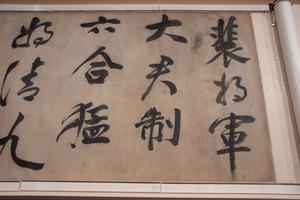 裴将軍
大君制
六合猛
将清九